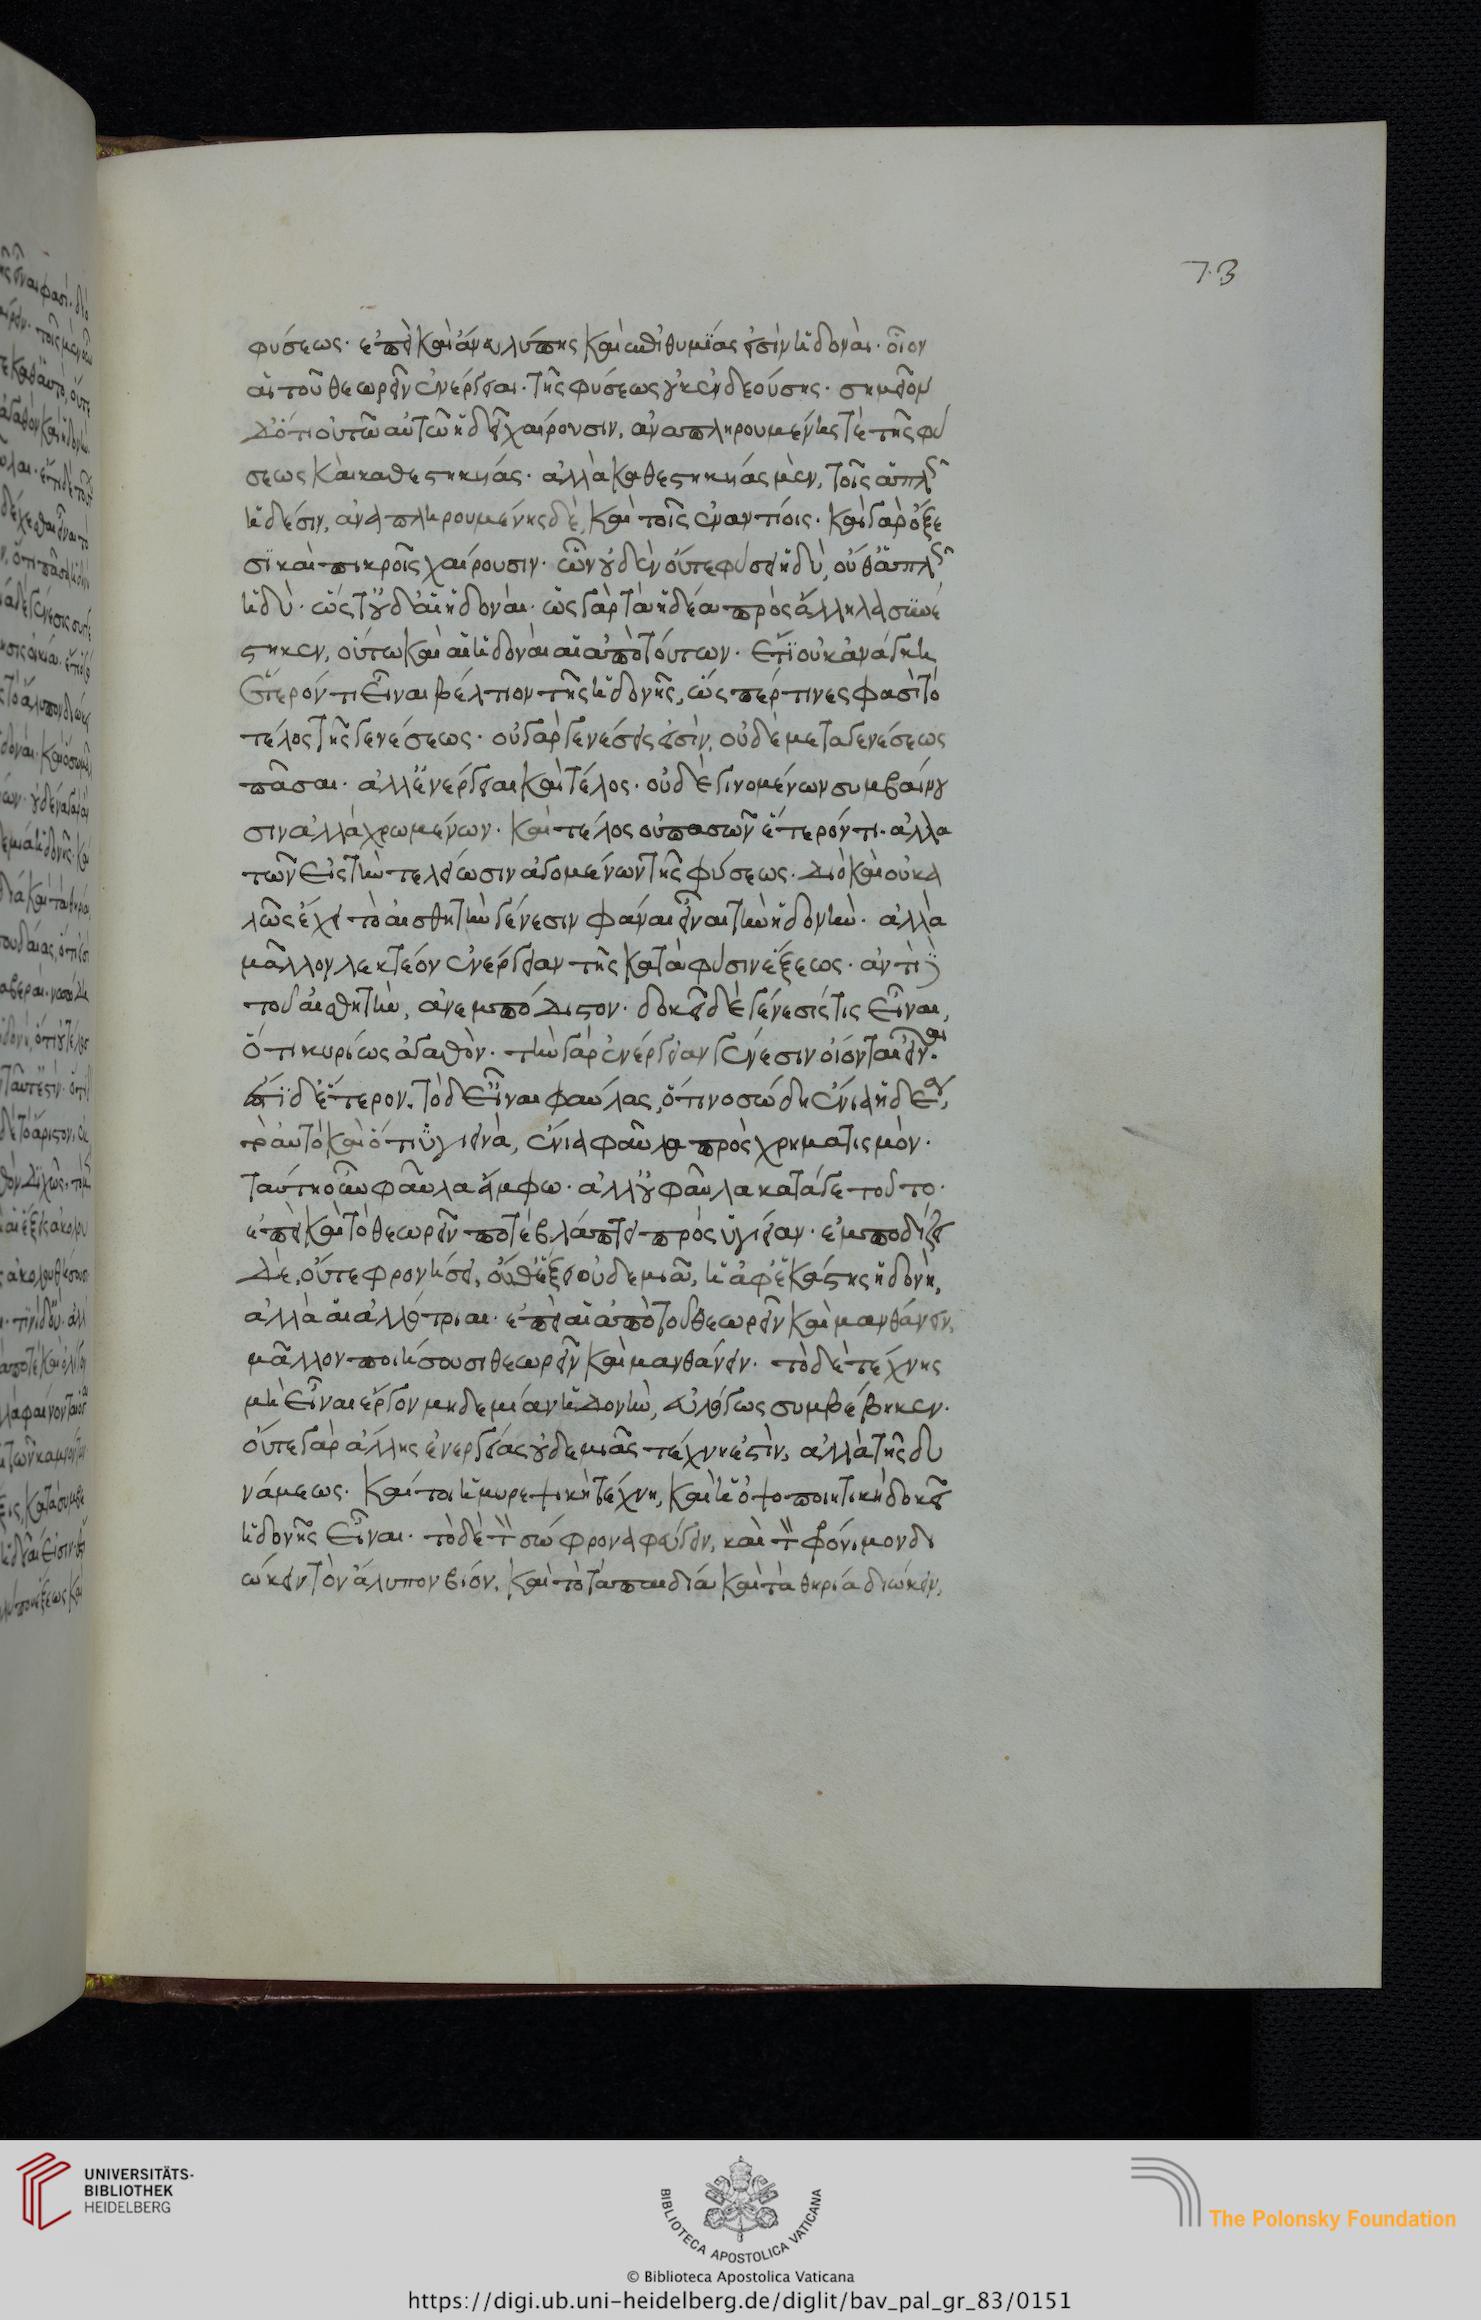 73
φύσεως· ἐπεὶ καὶ ἄνευ λύπης καὶ ἐπιθυμίας εἰσὶν ἡδοναί· οἷον
αἱ τοῦ θεωρεῖν ἐνέργειαι· τῆς φύσεως οὐκ ἐνδεούσης· σημεῖον
δ' ὅτι οὐ τῶ αὐτῶ ἡδεῖ χαίρουσιν, ἀναπληρουμένης τὲ τῆς φύ
σεως καὶ καθεστηκυίας· ἀλλὰ καθεστηκυίας μὲν, τοῖς ἁπλῶς
ἡδέσιν, ἀναπληρουμένης δὲ, καὶ τοῖς ἐναντίοις· καὶ γὰρ ὀξέ
σι καὶ πικροῖς χαίρουσιν· ὧν οὐδὲν οὔτε φύσει ἡδὺ, οὔθ' ἁπλῶς
ἡδὺ· ὥστ' οὐδ' αἱ ἡδοναί· ὡς γὰρ τὰ ἡδέα πρὸς ἄλληλα συνέ
στηκεν, οὕτω καὶ αἱ ἡδοναὶ αἱ ἀπὸ τούτων· ἔτι οὐκ ἀνάγκη
ἕτερόν τι εἶναι βέλτιον τῆς ἡδονῆς, ὥσπερ τινες φασὶ τὸ
τέλος τῆς γενέσεως· οὐ γὰρ γενέσεις εἰσὶν, οὐδὲ μετὰ γενέσεως
πᾶσαι· ἀλλ' ἐνέργειαι καὶ τέλος· οὐδὲ γινομένων συμβαίνου
σιν ἀλλὰ χρωμένων· καὶ τέλος οὐ πασῶν ἕτερόν τι· ἀλλὰ
τῶν εἰς τὴν τελείωσιν ἀγομένων τῆς φύσεως· διὸ καὶ οὐ κα
λῶς ἔχει τὸ αἰσθητὴν γένεσιν φάναι εἶναι τὴν ἡδονὴν· ἀλλὰ
μᾶλλον λεκτέον ἐνέργειαν τῆς κατὰ φύσιν ἕξεως· ἀντὶ δὲ
τοῦ αἰσθητὴν, ἀνεμπόδιστον· δοκεῖ δὲ γένεσίς τις εἶναι,
ὅτι κυρίως ἀγαθὸν· τὴν γὰρ ἐνέργειαν γένεσιν οἴονται εἶναι·
ἔστι δ' ἕτερον. τὸ δ' εἶναι φαύλας, ὅτι νοσώδη ἔνια ἡδέα,
τὸ αὐτὸ καὶ ὅτι ὑγιεινὰ, ἔνια φαῦλα πρὸς χρηματισμὸν·
ταύτη οὖν φαῦλα ἄμφω· ἀλλ' οὐ φαῦλα κατά γε τοῦτο·
ἐπεὶ καὶ τὸ θεωρεῖν ποτὲ βλάπτει πρὸς ὑγίειαν· ἐμποδίζει
δὲ, οὔτε φρονήσει, οὔθ' ἕξει οὐδεμιᾶ, ἡ ἀφ' ἑκάστης ἡδονὴ,
ἀλλὰ αἱ ἀλλότριαι· ἐπεὶ αἱ ἀπὸ τοῦ θεωρεῖν καὶ μανθάνειν,
μᾶλλον ποιήσουσι θεωρεῖν καὶ μανθάνειν· τὸ δὲ τέχνης
μὴ εἶναι ἔργον μηδεμίαν ἡδονὴν, εὐλόγως συμβέβηκεν·
οὔτε γὰρ ἄλλης ἐνεργείας οὐδεμιᾶς τέχνη ἐστὶν, ἀλλὰ τῆς δυ
νάμεως· καίτοι ἡ μυρεψικὴ τέχνη, καὶ ἡ ὀψοποιητικὴ δοκεῖ
ἡδονῆς εἶναι· τὸ δὲ τὸν σώφρονα φεύγειν, καὶ τὸν φρόνιμον δι
ώκειν τὸν ἄλυπον βίον, καὶ τὸ τὰ παιδία καὶ τὰ θηρία διώκειν,
UNIVERSITÄTS-
BIBLIOTHEK
HEIDELBERG
BIBLIOTECA APOSTOLICA VATICANA
© Biblioteca Apostolica Vaticana
The Polonsky Foundation
https://digi.ub.uni-heidelberg.de/diglit/bav_pal_gr_83/0151